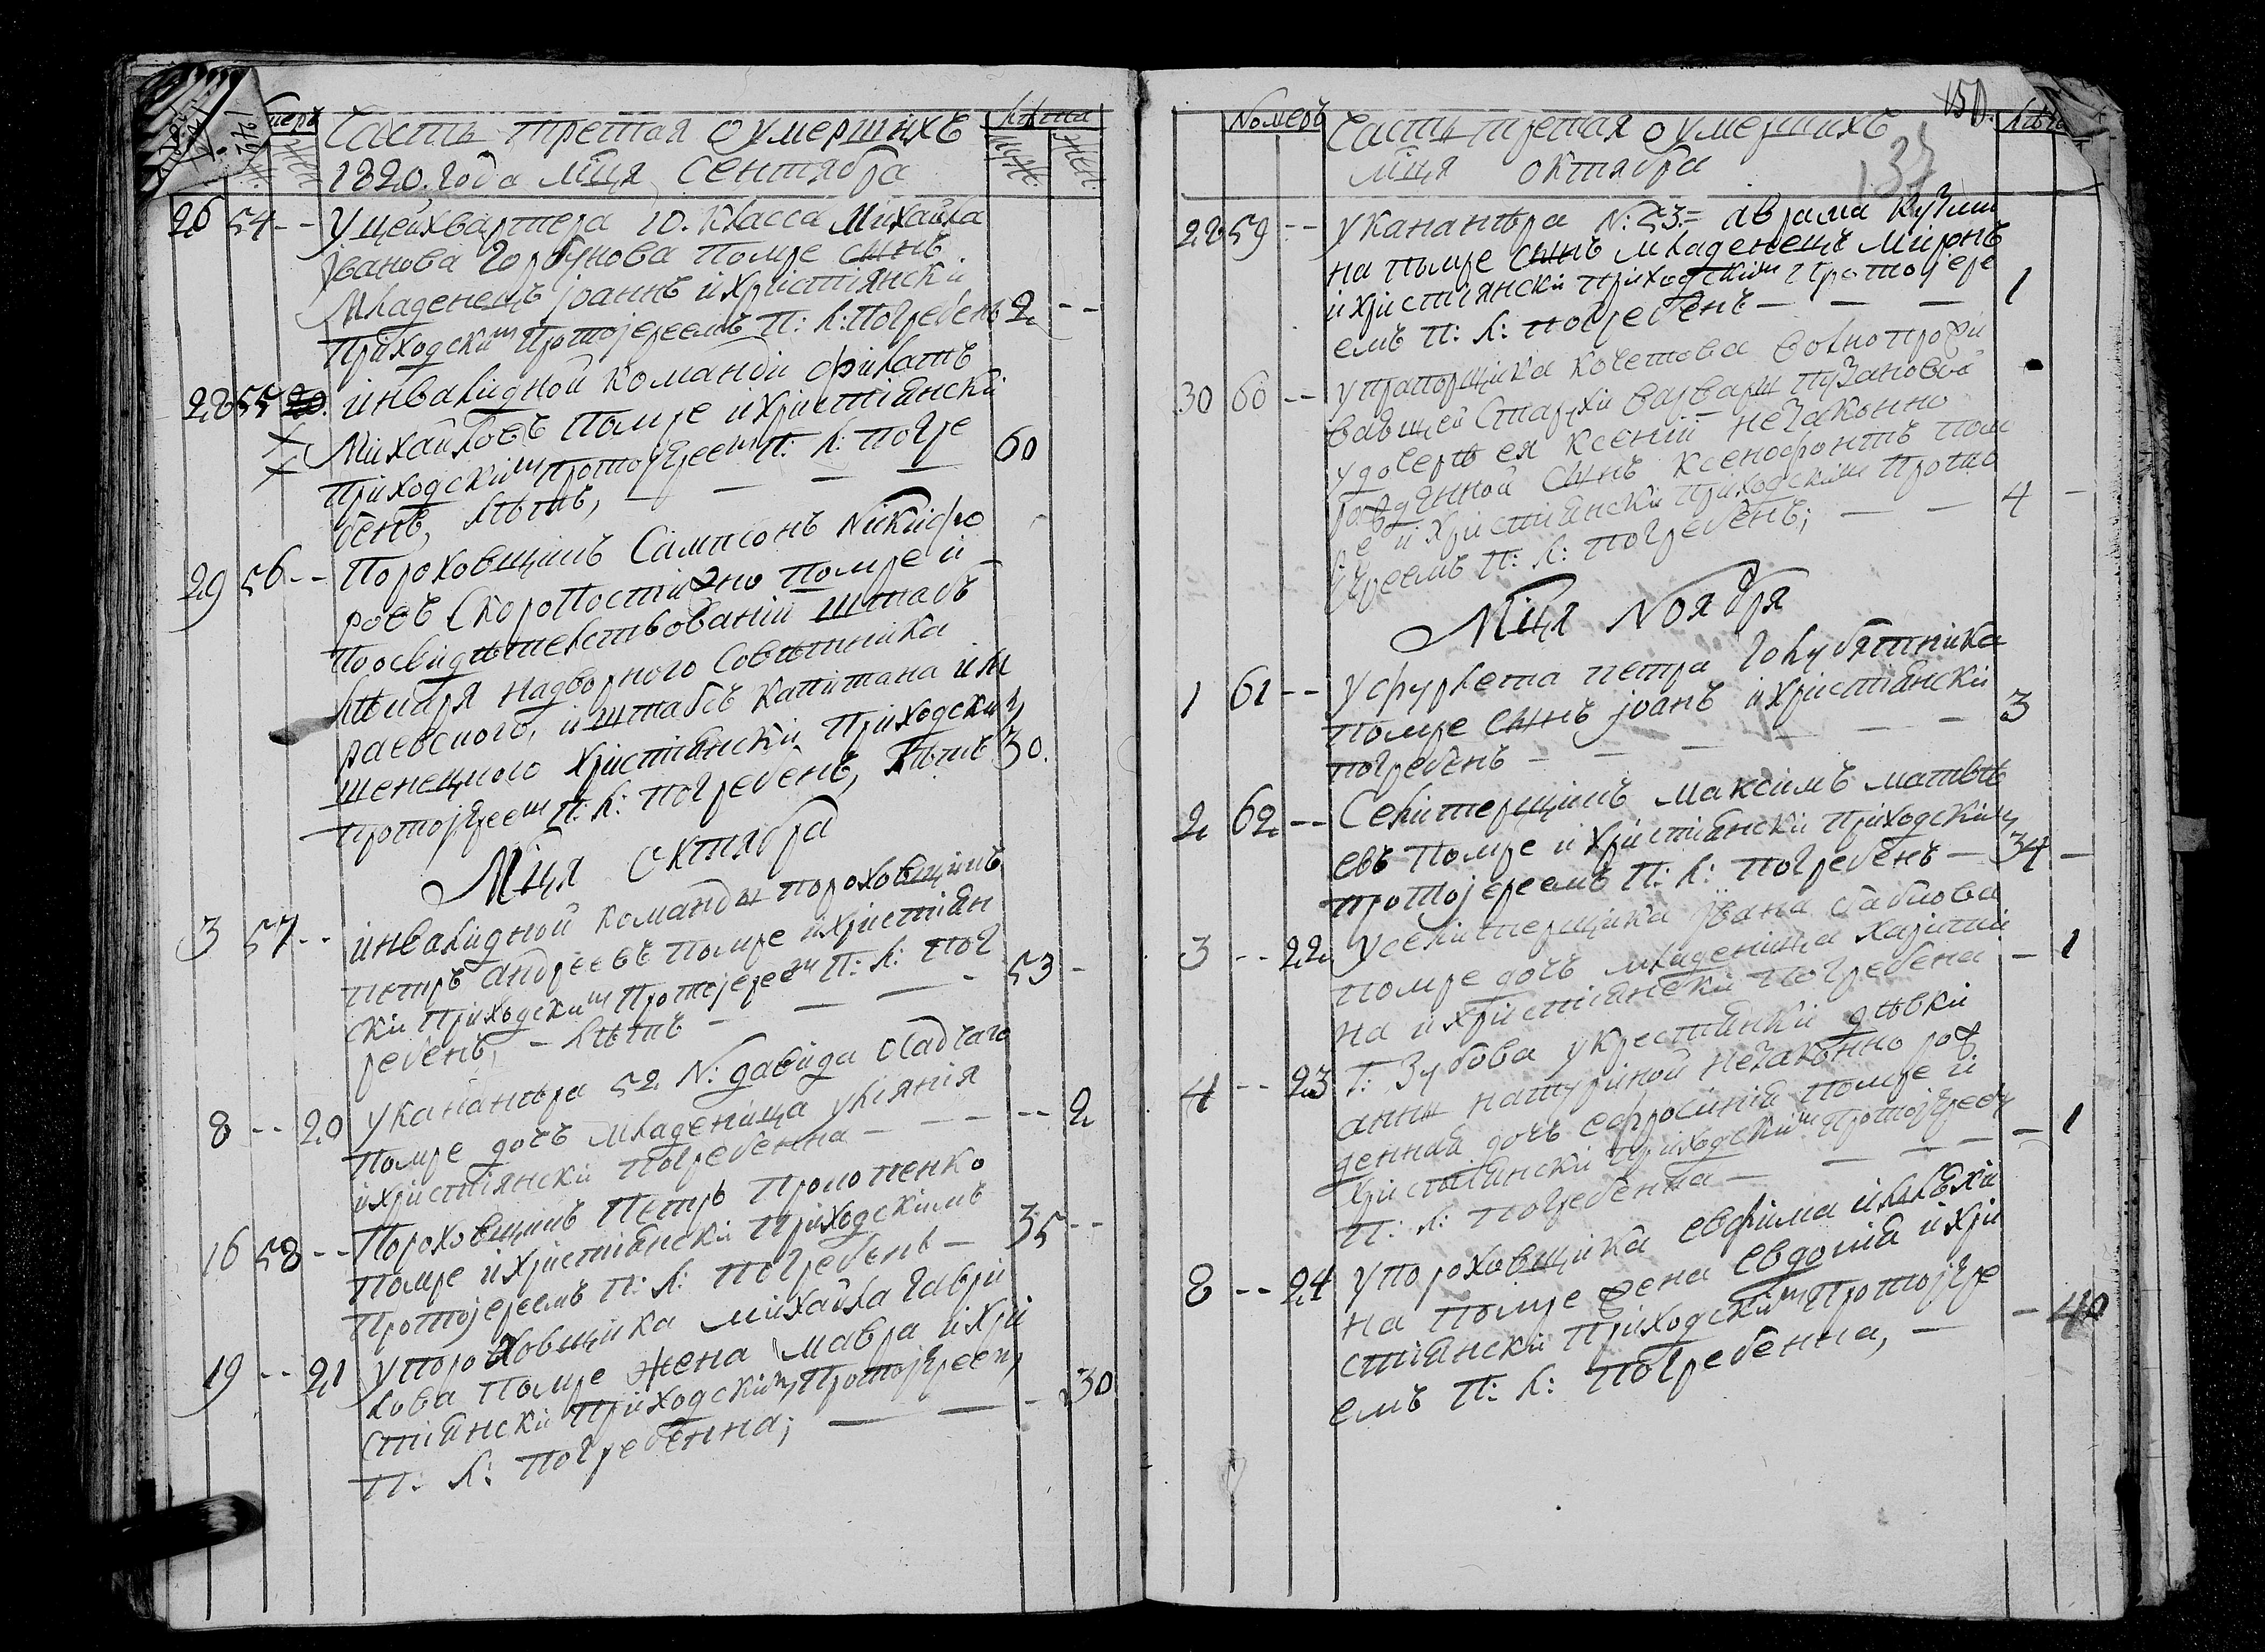 Часть третая о умершихъ
1820. года мца сентября
26 54 -- у цейхвартера 10. класса Михайла
Іванова Горбунова помре сынъ
младенецъ Іоаннъ и христіянски
приходским протоіереемъ П: Л: погребенъ 2 --
28 55 инвалидной команди Филатъ
Михайловъ помре и христіянски
приходским протоіереем П: Л: погре
бенъ, лѣтъ, — — — 60
29 56 -- Пороховщикъ Сампсонъ Никифо
ровъ скоропостижно помре и
по освидѣтелствованій штабъ
лѣкаря надворного совѣтника
раевского, и штабсъ капитана
христіянски приходским
протоіереем П: Л: погребенъ, лѣтъ 30.
Мца Октября
3 57 -- инвалидной команды пороховщикъ
петръ андреевъ помре и христіян
ски приходским протоіереем П: Л: пог
ребенъ, - лѣтъ — — — 53 -
8 -- 20 у канонѣра 52 N: давида Сладчаго
помре дочь младеница уліянія
и христіянски погребенна — — -- 2
16 58 -- Пороховщикъ Петръ Прокопенко
помре и христіянски приходскимъ
протоіереемъ П: Л: погребенъ — 35 --
19 -- 21 у пороховщика михайла гаври
лова помре жена мавра и хри
стіянски приходским протоіереем
П: Л: погребенна; — — - 30
Номеръ
Часть третая о умершихъ
мца октября
150.
137
28 59 -- у канонѣра N: 53 = аврама кузми
на помре сынъ младенецъ Миронъ
и христіянски приходским протоіере
емъ П: Л: погребенъ — — — 1
30 60 -- у прапорщика кочетова волнопрожи
вающей старухи варвары пузановой
у дочеры ея ксеніи незаконно
рожденной сынъ ксенофонтъ пом
ре и христіянски приходским прото
іереемъ П: Л: погребенъ; — — 4 -
Мца Ноября
1 61 -- у фурлета петра голубятника
помре сынъ іоанъ и христіянски
погребенъ — — — 3
2 62 -- Селитерщикъ максимъ матвѣ
евъ помре и христіянски приходским
протоіереемъ П: Л: погребенъ — 34 —
3 -- 22 у селитерщика івана бабкова
помре дочь младеница харити
на и христіянски погребена — 1
4 -- 23 Г: Зубова у крестянки дѣвки
анны натуриной незаконно рож
денная дочь ефросинія помре и
христіянски приходским протоіереем
П: Л: погребенна — — 1
8 -- 24 у пороховщика евфима
на помре жена евдокія и хри
стіянски приходским протоіере
емъ П: Л: погребенна, — — 40